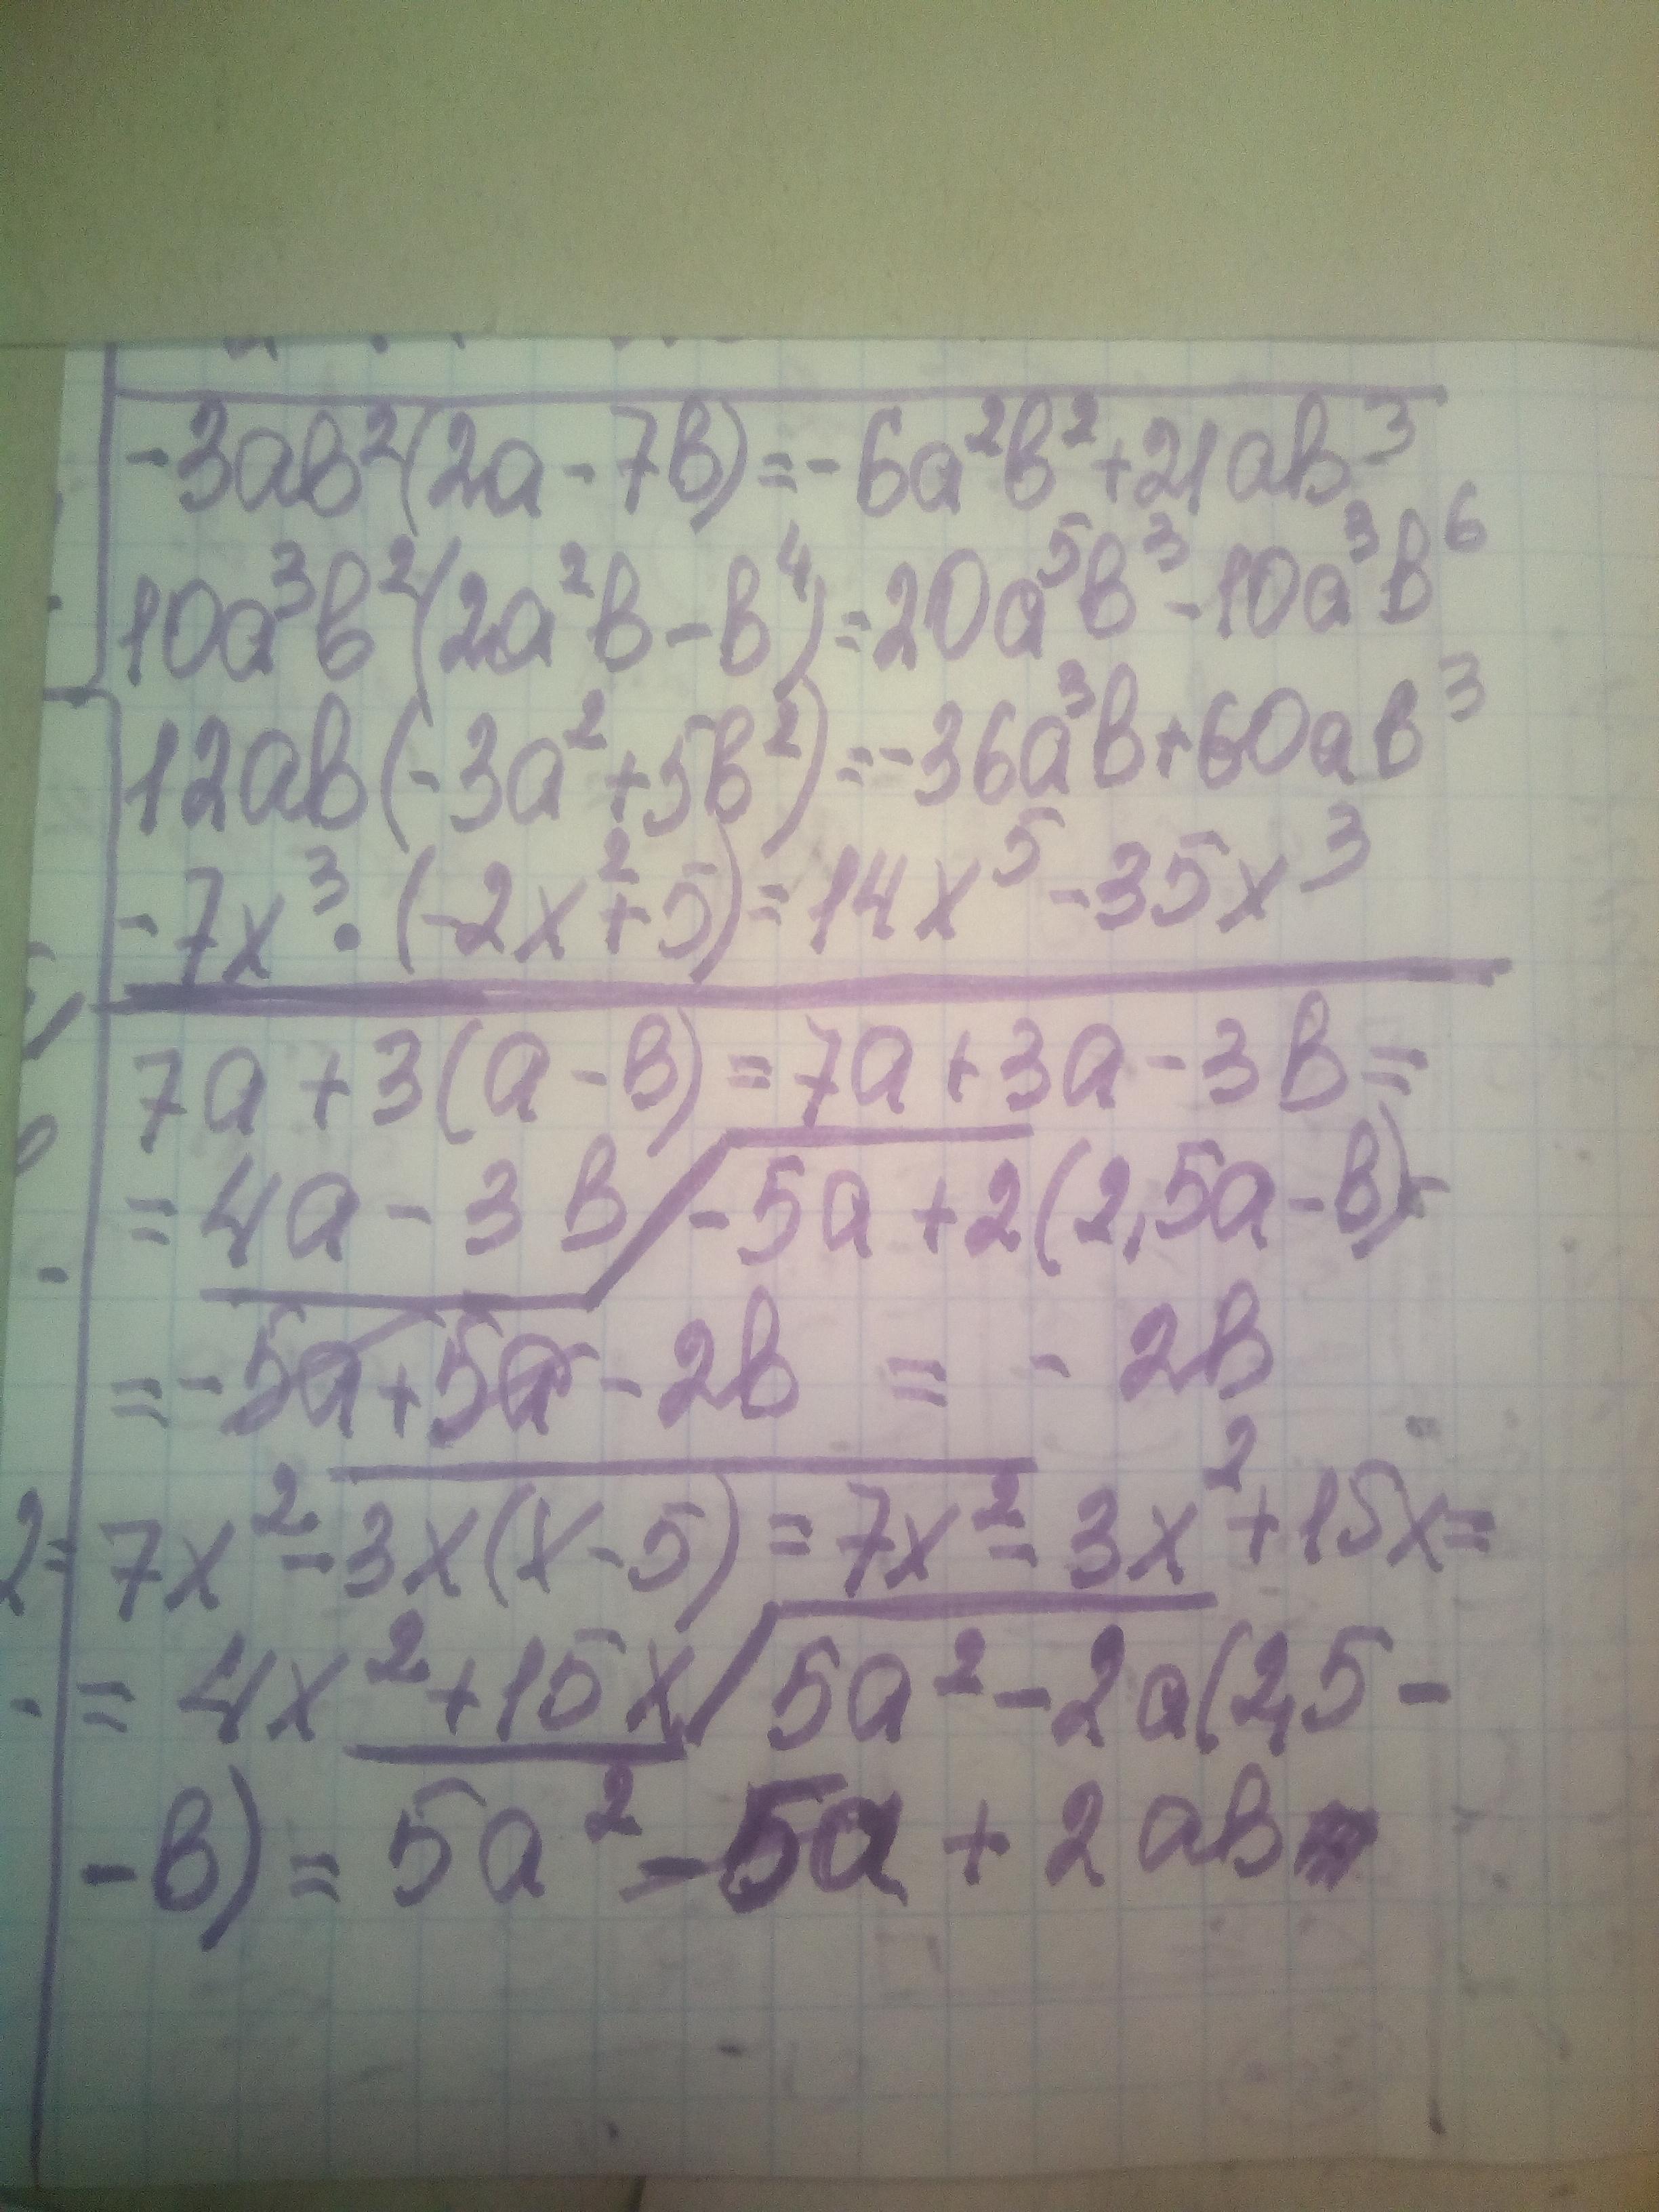 -3ab²(2a-7b)=-6a²b²+21ab³
10a³b²(2a²b-b⁴)=20a⁵b³-10a³b⁶
12ab(-3a²+5b²)=-36a³b+60ab³
-7x³·(-2x²+5)=14x⁵-35x³
7a+3(a-b)=7a+3a-3b=
=4a-3b/-5a+2(2,5a-b)=
=-5a+5a-2b = -2b
2=
7x²-3x(x-5)=7x²-3x²+15x=
=4x²+15x/5a²-2a(2,5-
-b)=5a²-5a+2ab